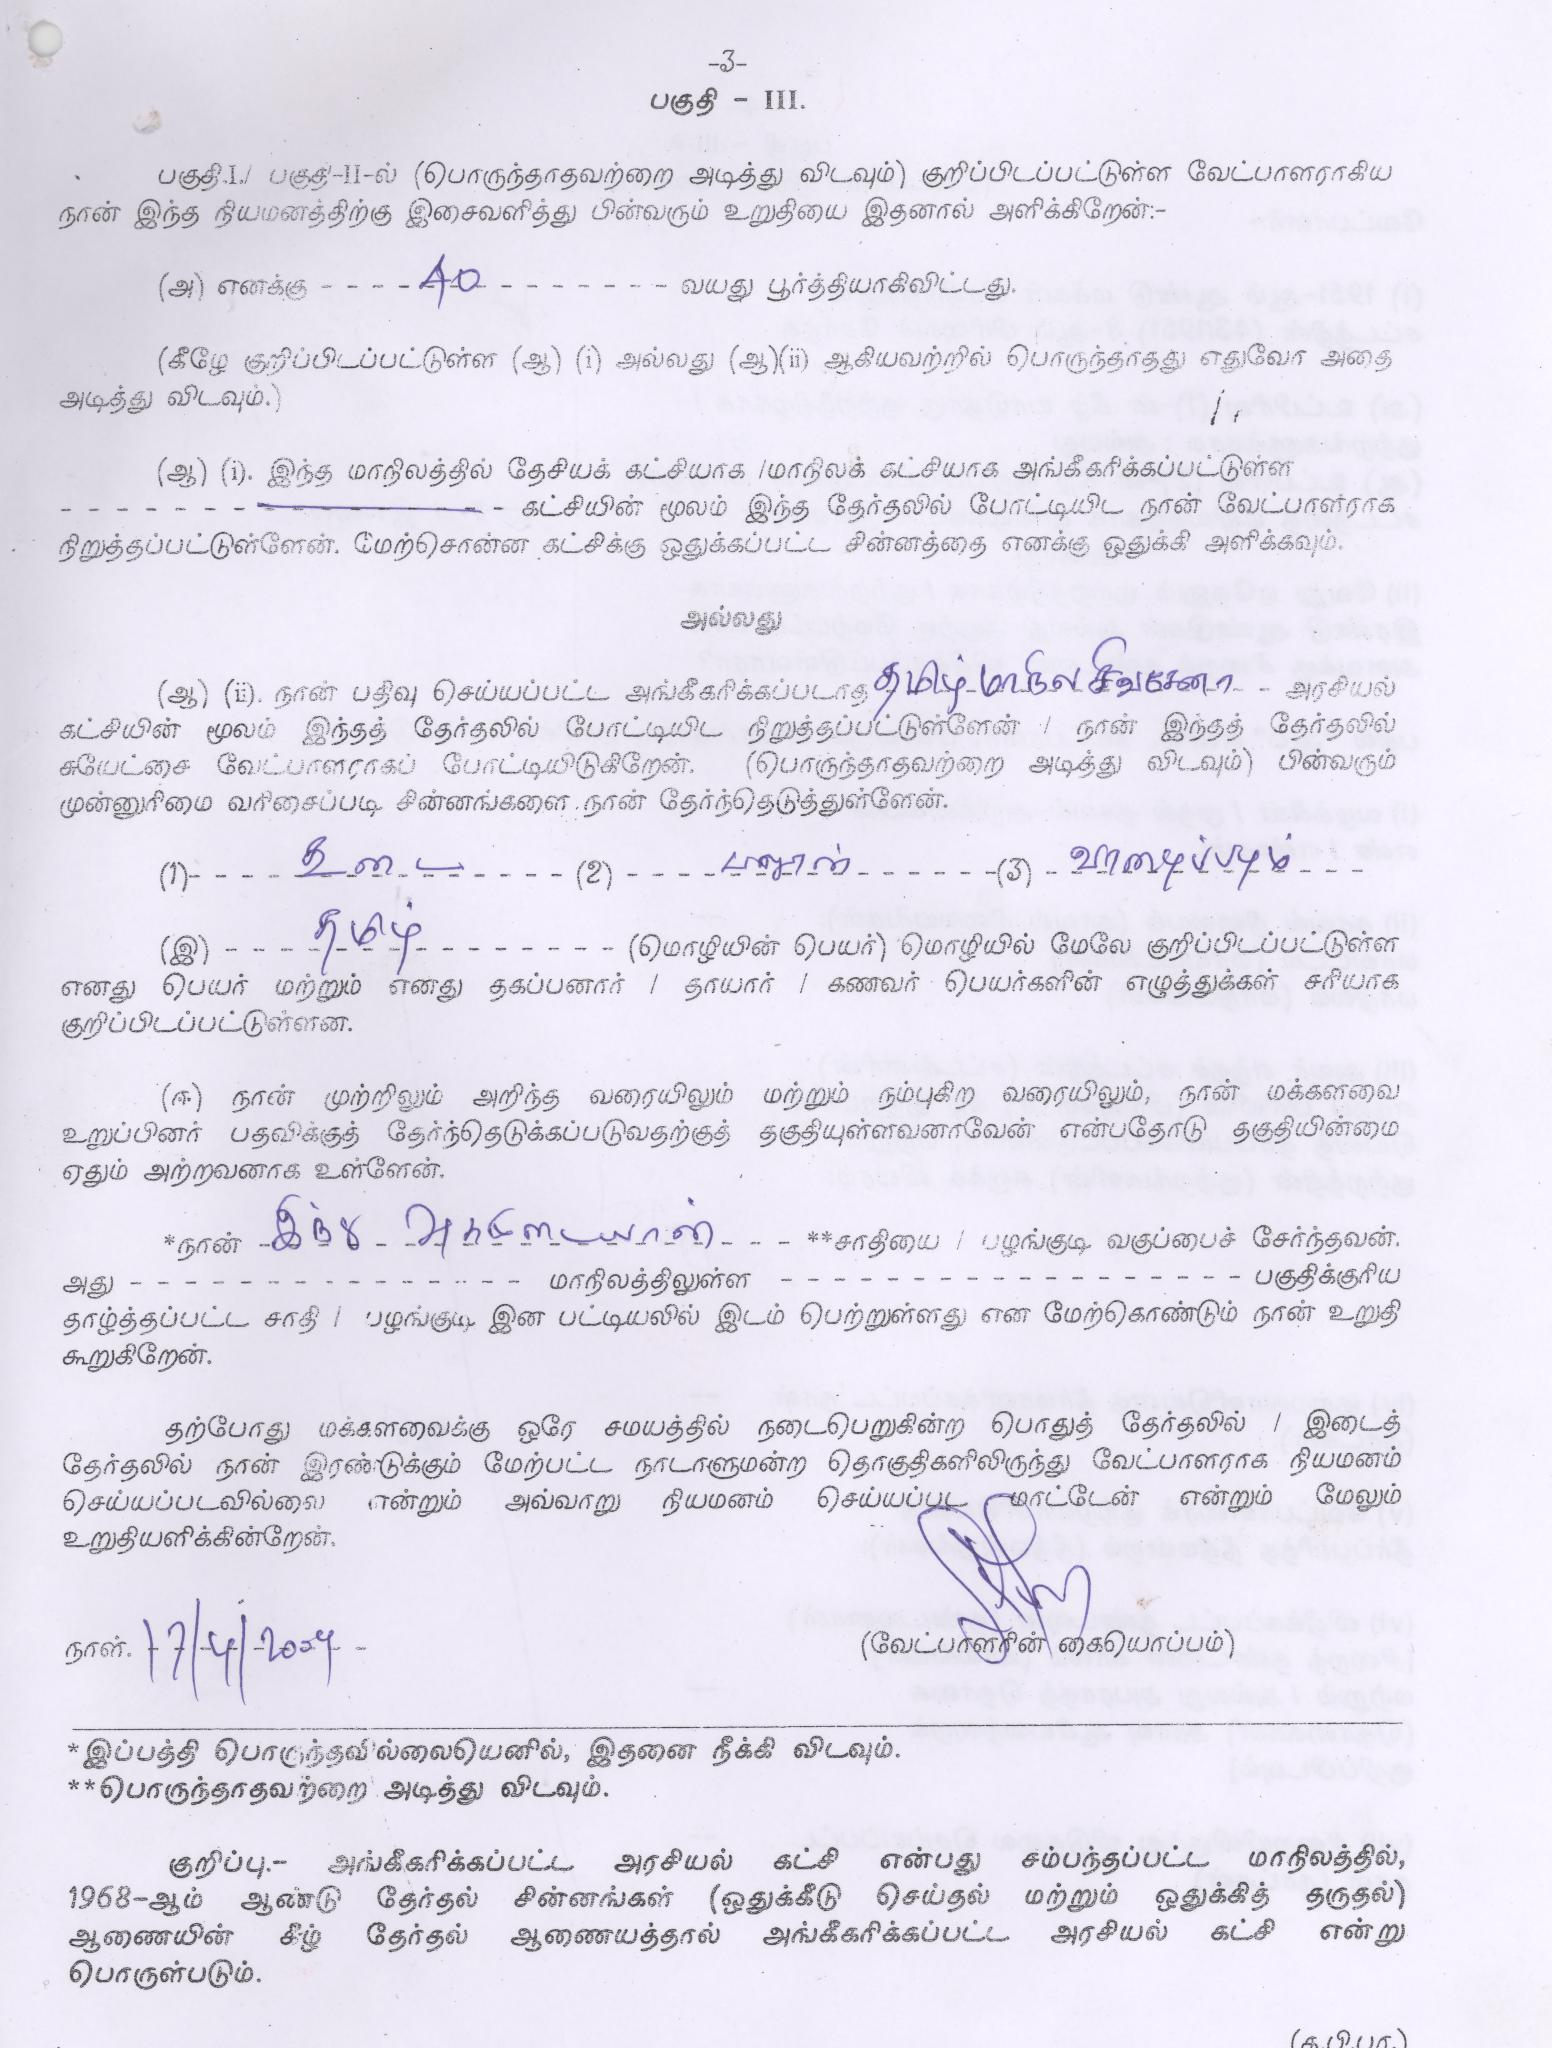 -3-
பகுதி - III.
பகுதி.I./ பகுதி-II-ல் (பொருந்தாதவற்றை அடித்து விடவும்) குறிப்பிடப்பட்டுள்ள வேட்பாளராகிய
நான் இந்த நியமனத்திற்கு இசைவளித்து பின்வரும் உறுதியை இதனால் அளிக்கிறேன்:-
(அ) எனக்கு - - - - 40 - - - - - - - - வயது பூர்த்தியாகிவிட்டது.
(கீழே குறிப்பிடப்பட்டுள்ள (ஆ) (i) அல்லது (ஆ)(ii) ஆகியவற்றில் பொருந்தாதது எதுவோ அதை
அடித்து விடவும்.)
(ஆ) (i). இந்த மாநிலத்தில் தேசியக் கட்சியாக /மாநிலக் கட்சியாக அங்கீகரிக்கப்பட்டுள்ள
- - - - - - - - - - - - - - - - - - கட்சியின் மூலம் இந்த தேர்தலில் போட்டியிட நான் வேட்பாளராக
நிறுத்தப்பட்டுள்ளேன். மேற்சொன்ன கட்சிக்கு ஒதுக்கப்பட்ட சின்னத்தை எனக்கு ஒதுக்கி அளிக்கவும்.
அல்லது
(ஆ) (ii). நான் பதிவு செய்யப்பட்ட அங்கீகரிக்கப்படாத தமிழ் மாநில சிவசேனா - - அரசியல்
கட்சியின் மூலம் இந்தத் தேர்தலில் போட்டியிட நிறுத்தப்பட்டுள்ளேன் / நான் இந்தத் தேர்தலில்
சுயேட்சை வேட்பாளராகப் போட்டியிடுகிறேன். (பொருந்தாதவற்றை அடித்து விடவும்) பின்வரும்
முன்னுரிமை வரிசைப்படி சின்னங்களை நான் தேர்ந்தெடுத்துள்ளேன்.
(1)- - - - - - - - - - - - (2) - - - - பலூன் - - - - - -(3) - வாழைப்பழம் - - -
(இ) - - - - தமிழ் - - - - - - - - (மொழியின் பெயர்) மொழியில் மேலே குறிப்பிடப்பட்டுள்ள
எனது பெயர் மற்றும் எனது தகப்பனார் / தாயார் / கணவர் பெயர்களின் எழுத்துக்கள் சரியாக
குறிப்பிடப்பட்டுள்ளன.
(ஈ) நான் முற்றிலும் அறிந்த வரையிலும் மற்றும் நம்புகிற வரையிலும், நான் மக்களவை
உறுப்பினர் பதவிக்குத் தேர்ந்தெடுக்கப்படுவதற்குத் தகுதியுள்ளவனாவேன் என்பதோடு தகுதியின்மை
ஏதும் அற்றவனாக உள்ளேன்.
*நான் - இந்து அகமுடையான் - - - - **சாதியை / பழங்குடி வகுப்பைச் சேர்ந்தவன்.
அது - - - - - - - - - - - - - - - - மாநிலத்திலுள்ள - - - - - - - - - - - - - - - - - - - பகுதிக்குரிய
தாழ்த்தப்பட்ட சாதி / பழங்குடி இன பட்டியலில் இடம் பெற்றுள்ளது என மேற்கொண்டும் நான் உறுதி
கூறுகிறேன்.
தற்போது மக்களவைக்கு ஒரே சமயத்தில் நடைபெறுகின்ற பொதுத் தேர்தலில் / இடைத்
தேர்தலில் நான் இரண்டுக்கும் மேற்பட்ட நாடாளுமன்ற தொகுதிகளிலிருந்து வேட்பாளராக நியமனம்
செய்யப்படவில்லை என்றும் அவ்வாறு நியமனம் செய்யப்பட மாட்டேன் என்றும் மேலும்
உறுதியளிக்கின்றேன்.
நாள். 17/4/2004
(வேட்பாளரின் கையொப்பம்)
*இப்பத்தி பொருந்தவில்லையெனில், இதனை நீக்கி விடவும்.
**பொருந்தாதவற்றை அடித்து விடவும்.
குறிப்பு.- அங்கீகரிக்கப்பட்ட அரசியல் கட்சி என்பது சம்பந்தப்பட்ட மாநிலத்தில்,
1968-ஆம் ஆண்டு தேர்தல் சின்னங்கள் (ஒதுக்கீடு செய்தல் மற்றும் ஒதுக்கித் தருதல்)
ஆணையின் கீழ் தேர்தல் ஆணையத்தால் அங்கீகரிக்கப்பட்ட அரசியல் கட்சி என்று
பொருள்படும்.
(த.பி.பா.)